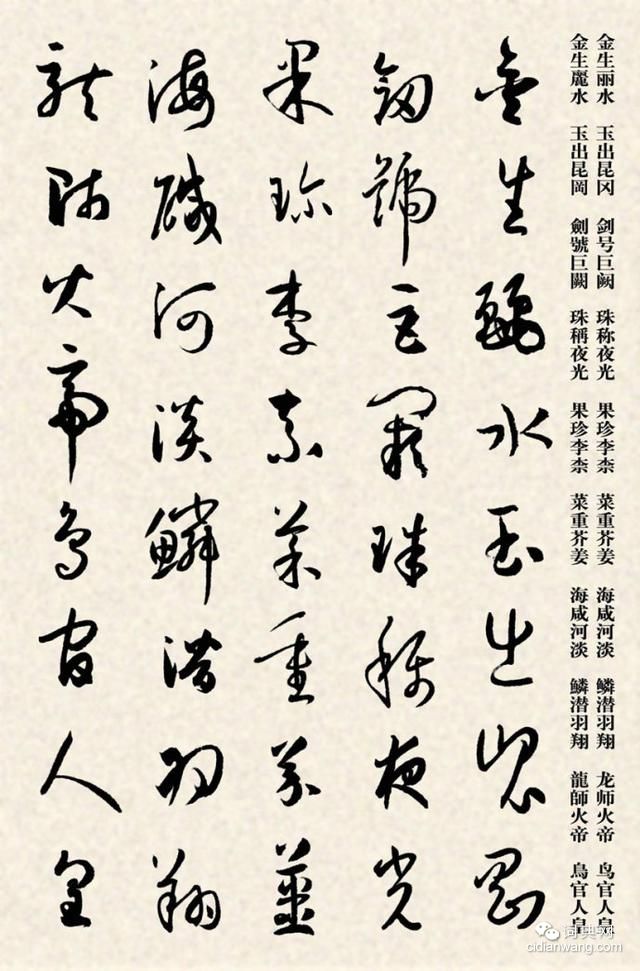 金生丽水 玉出昆冈 剑号巨阙 珠称夜光 果珍李柰 菜重芥姜 海咸河淡 鳞潜羽翔 龙师火帝 鸟官人皇
金生麗水 玉出昆岡 劍號巨闕 珠稱夜光 果珍李柰 菜重芥姜 海咸河淡 鱗潜羽翔 龍師火帝 鳥官人皇
金生麗水玉出崑岡
劍號巨闕珠稱夜光
果珍李柰菜重芥薑
海鹹河淡鱗潛羽翔
龍師火帝鳥官人皇
词典网
cidianwang.com